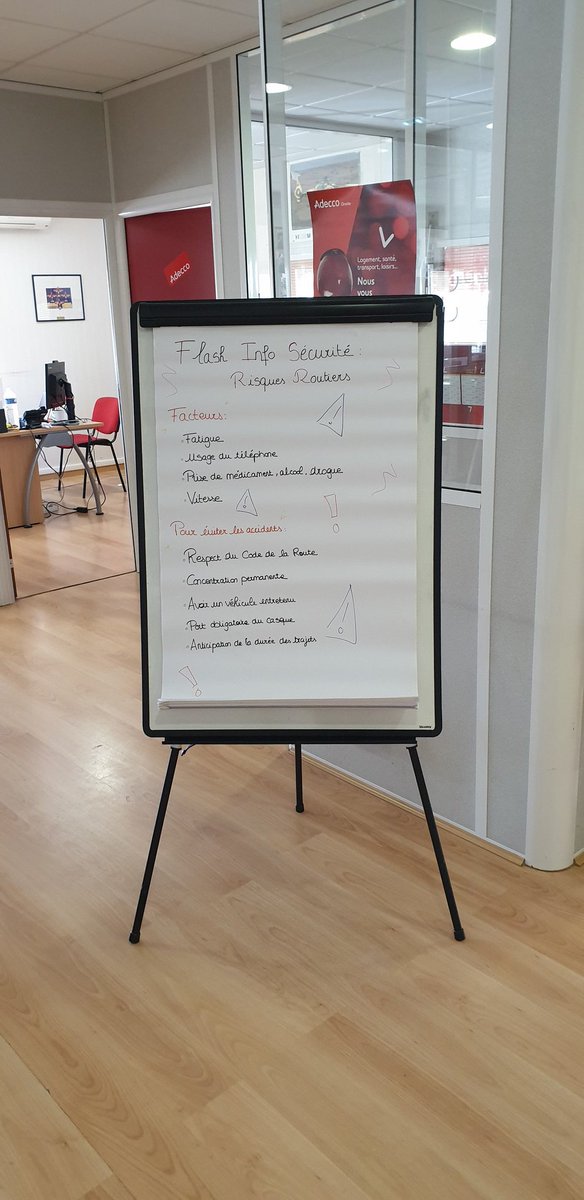 Adecco
Logement, santé,
transport, loisirs...
Nous
vous
Adecco
Flash Info Sécurité :
Risques Routiers
Facteurs :
- Fatigue
- Usage du téléphone
- Prise de médicament, alcool, drogue
- Vitesse
Pour éviter les accidents :
- Respect du Code de la Route
- Concentration permanente
- Avoir un véhicule entretenu
- Port obligatoire du casque
- Anticipation de la durée des trajets